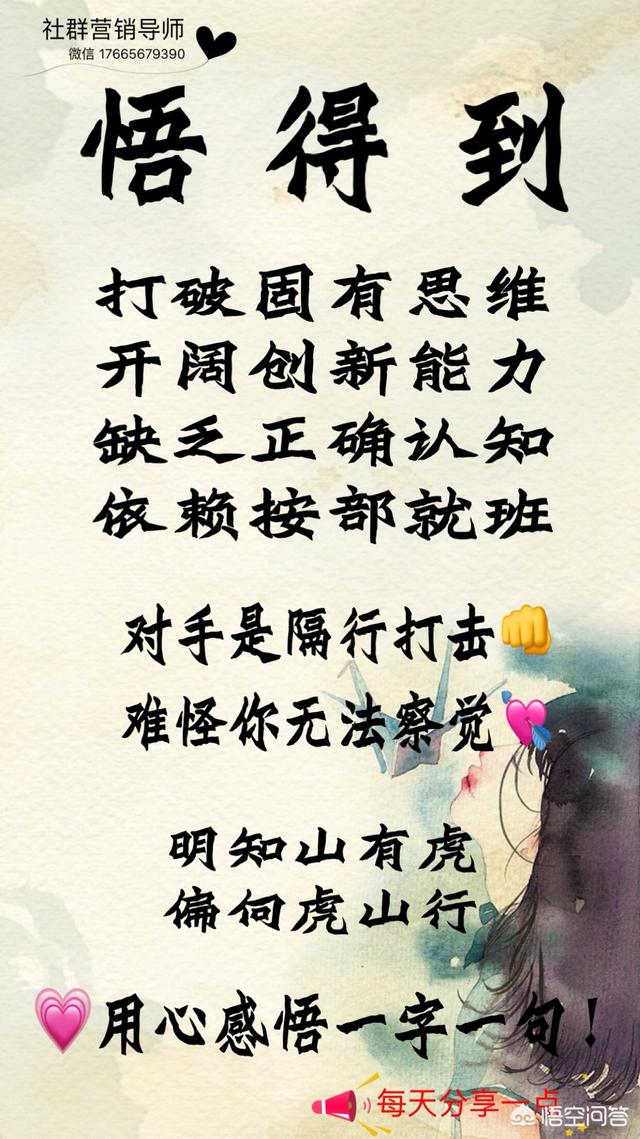 社群营销导师
微信 17665679390
悟得到
打破固有思维
开阔创新能力
缺乏正确认知
依赖按部就班
对手是隔行打击👊
难怪你无法察觉💘
明知山有虎
偏向虎山行
💗用心感悟一字一句！
每天分享一点
悟空问答